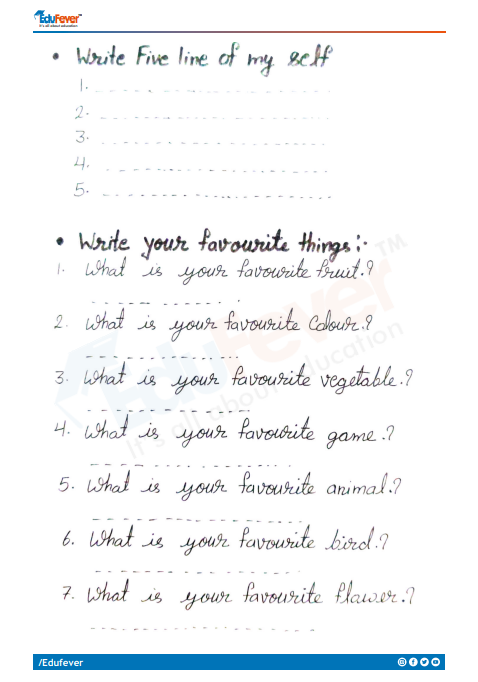 EduFever™
It's all about education
• Write Five line of my self
1. 
2. 
3. 
4. 
5. 
• Write your favourite things:-
1. What is your favourite fruit.?
2. What is your favourite Colour.?
3. What is your favourite vegetable.?
4. What is your favourite game.?
5. What is your favourite animal.?
6. What is your favourite bird.?
7. What is your favourite flawer.?
EduFever™
It's all about education
/Edufever